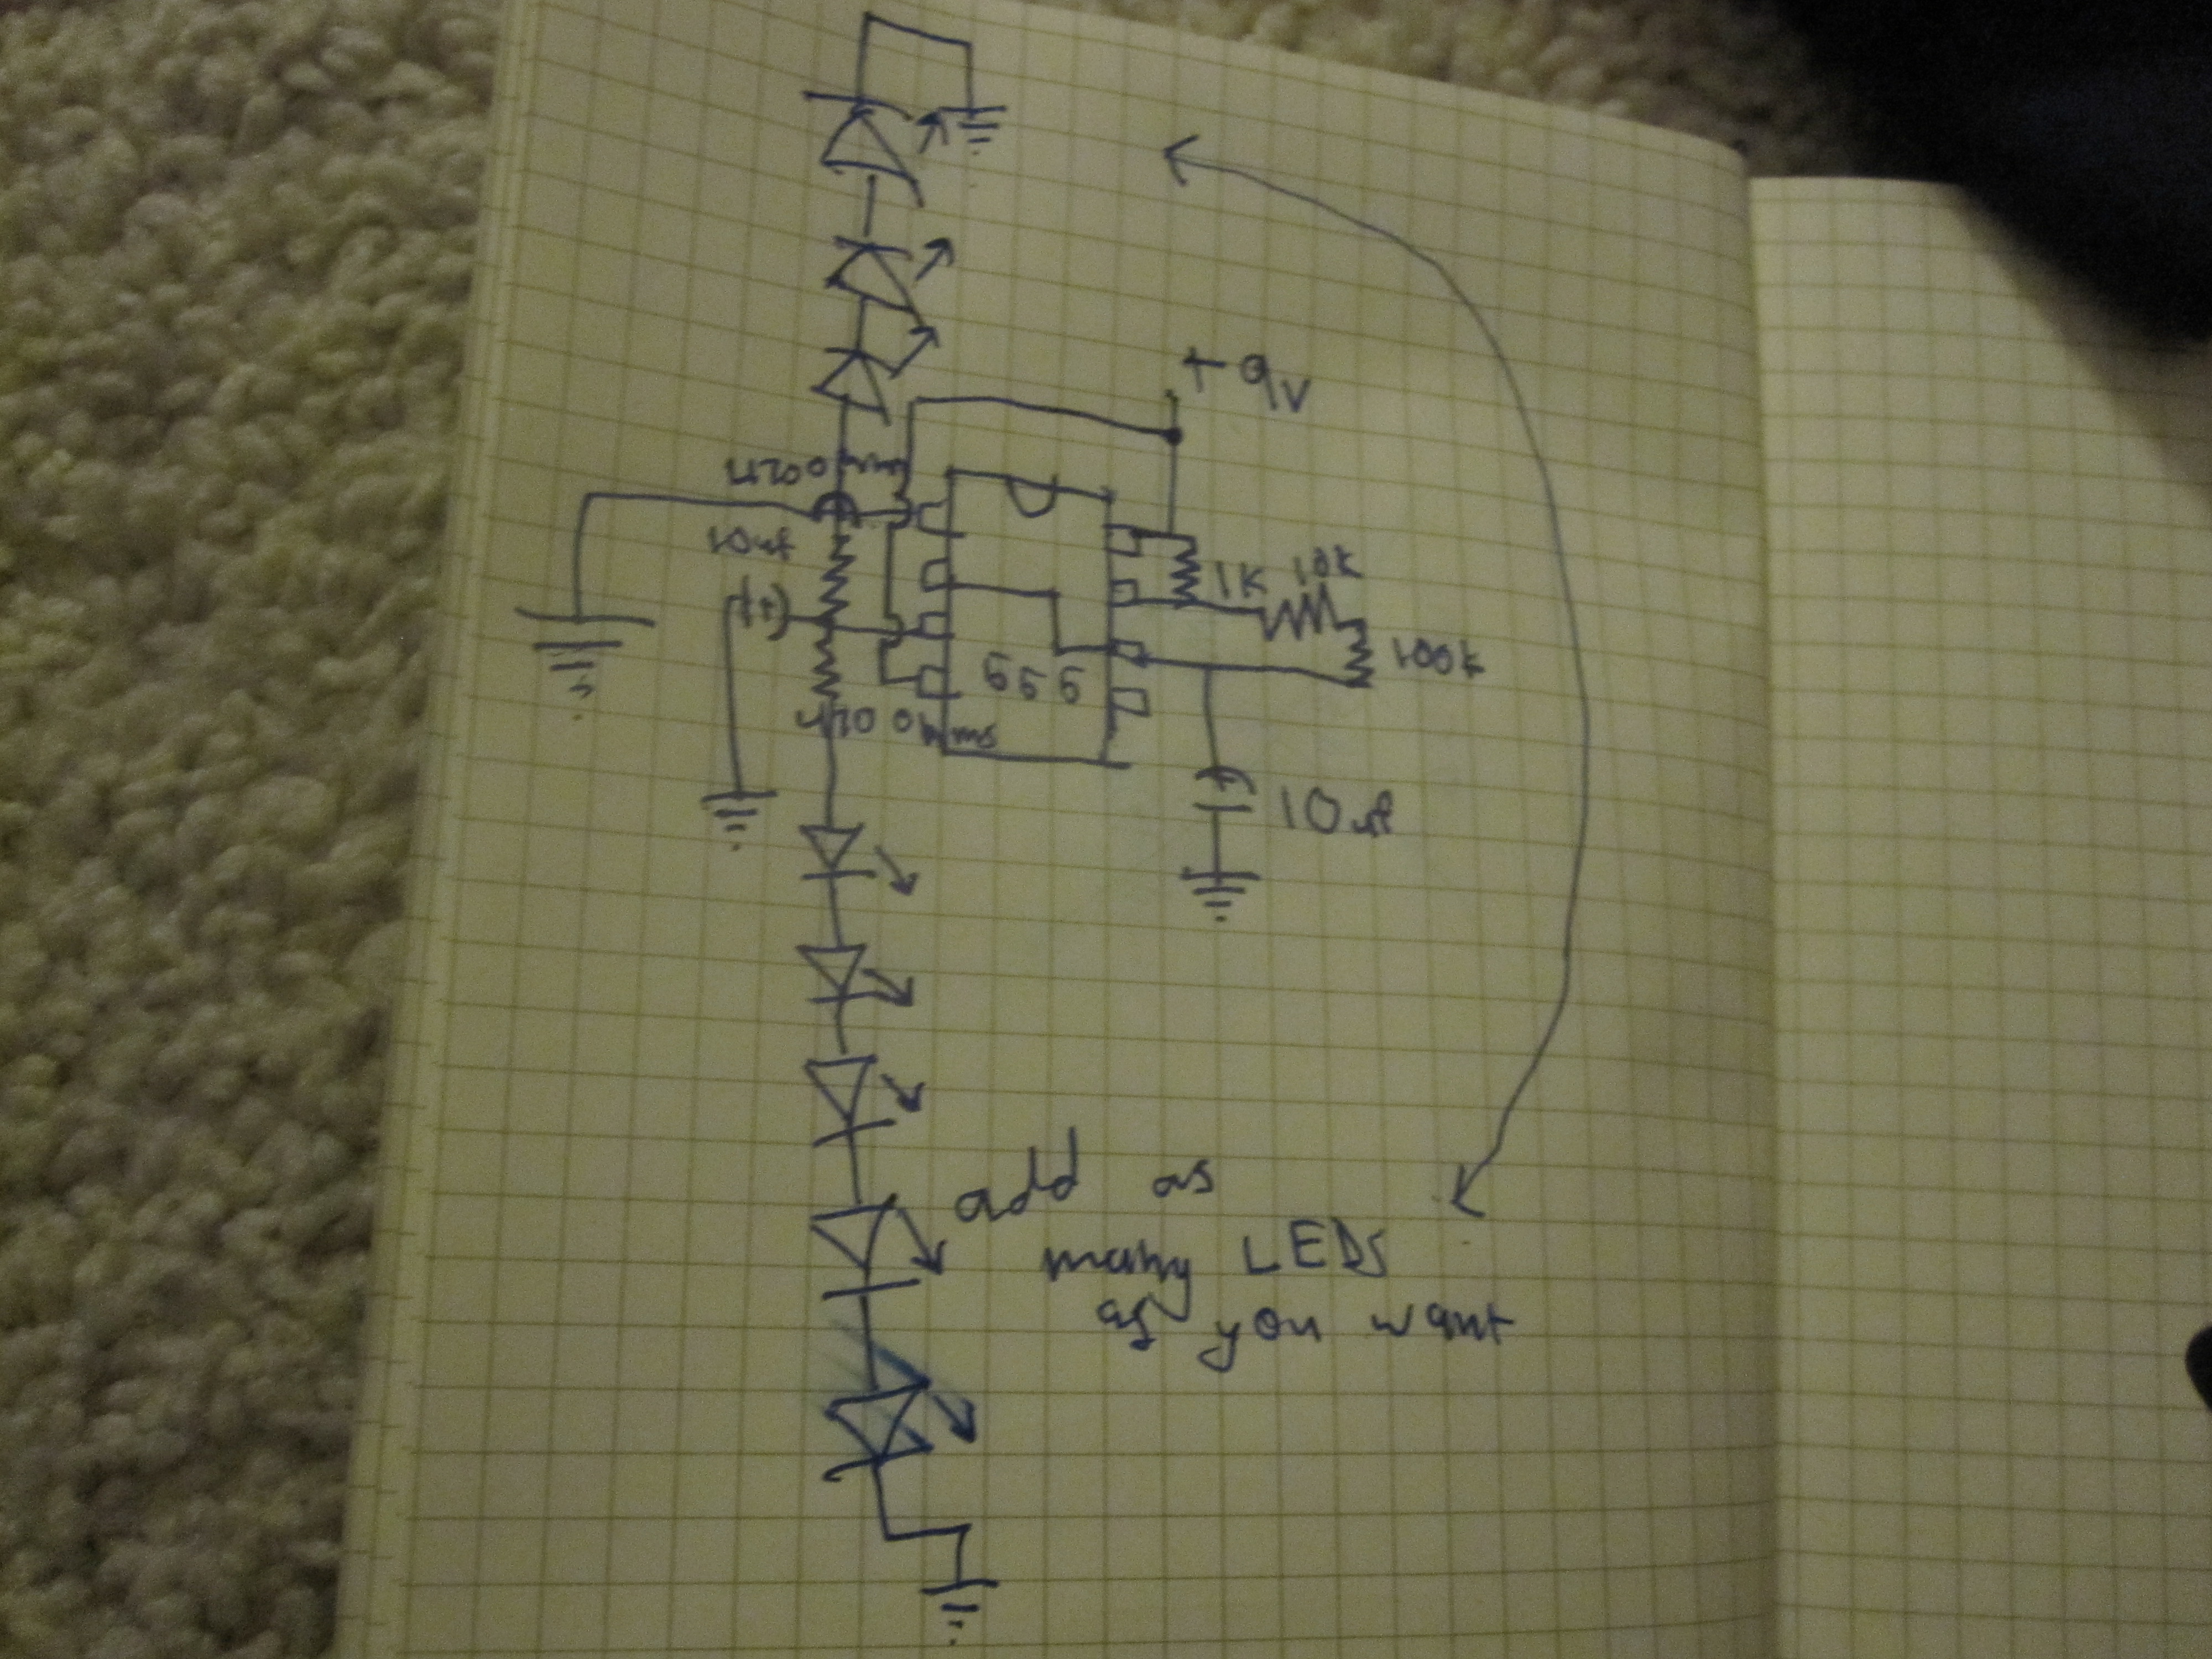 +9v
10uf
1K 10k
100k
555
10uf
add as
many LEDs
as you want